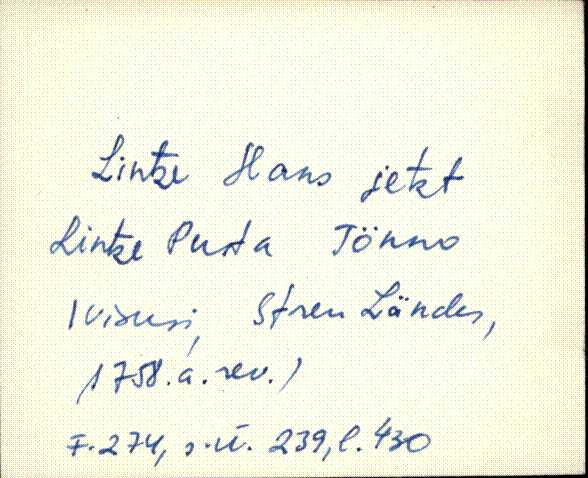 Lintze Hans jetzt
Lintze Pusta Tönno
Ivisusi, Streu Ländes,
(1758.a. rev.)
F.274, s.-ü. 239, l. 430